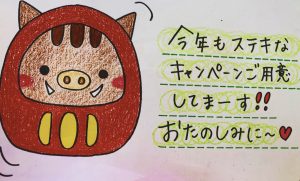 今年もステキな
キャンペーンご用意
してまーす!!
おたのしみに～♥